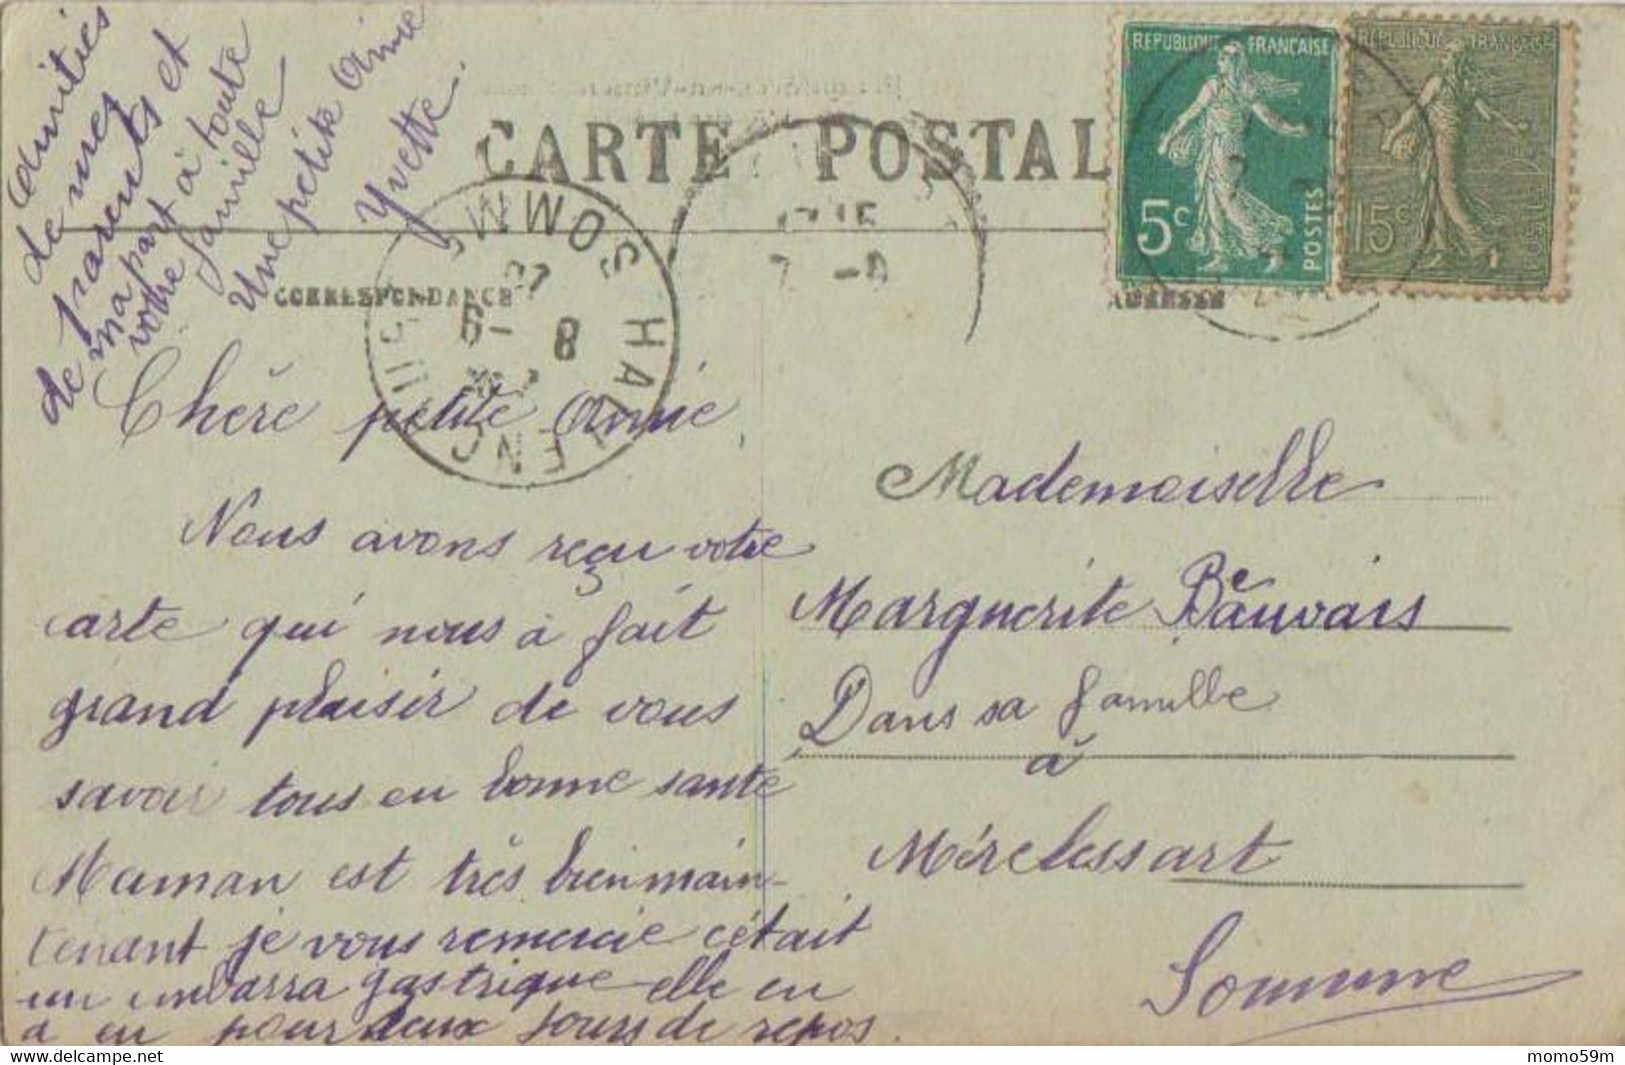 CARTE POSTAL
REPUBLIQUE FRANÇAISE
5c
POSTES
REPUBLIQUE FRANÇAISE
15c
CORRESPONDANCE
ADRESSE
HALLENCOURT SOMME
6 - 8
17 15
7 - 8
amitiés
de mes
parents et
de ma part à toute
votre famille
Une petite Amie
Yvette.
Chère petite Amie,
Nous avons reçu votre
carte qui nous à fait
grand plaisir de vous
savoir tous en bonne santé
Maman est très bien main-
tenant je vous remercie c'était
un embarra gastrique elle en
a eu pour deux jours de repos.
Mademoiselle
Marguerite Beauvais
Dans sa famille
à
Mérelessart
Somme
momo59m